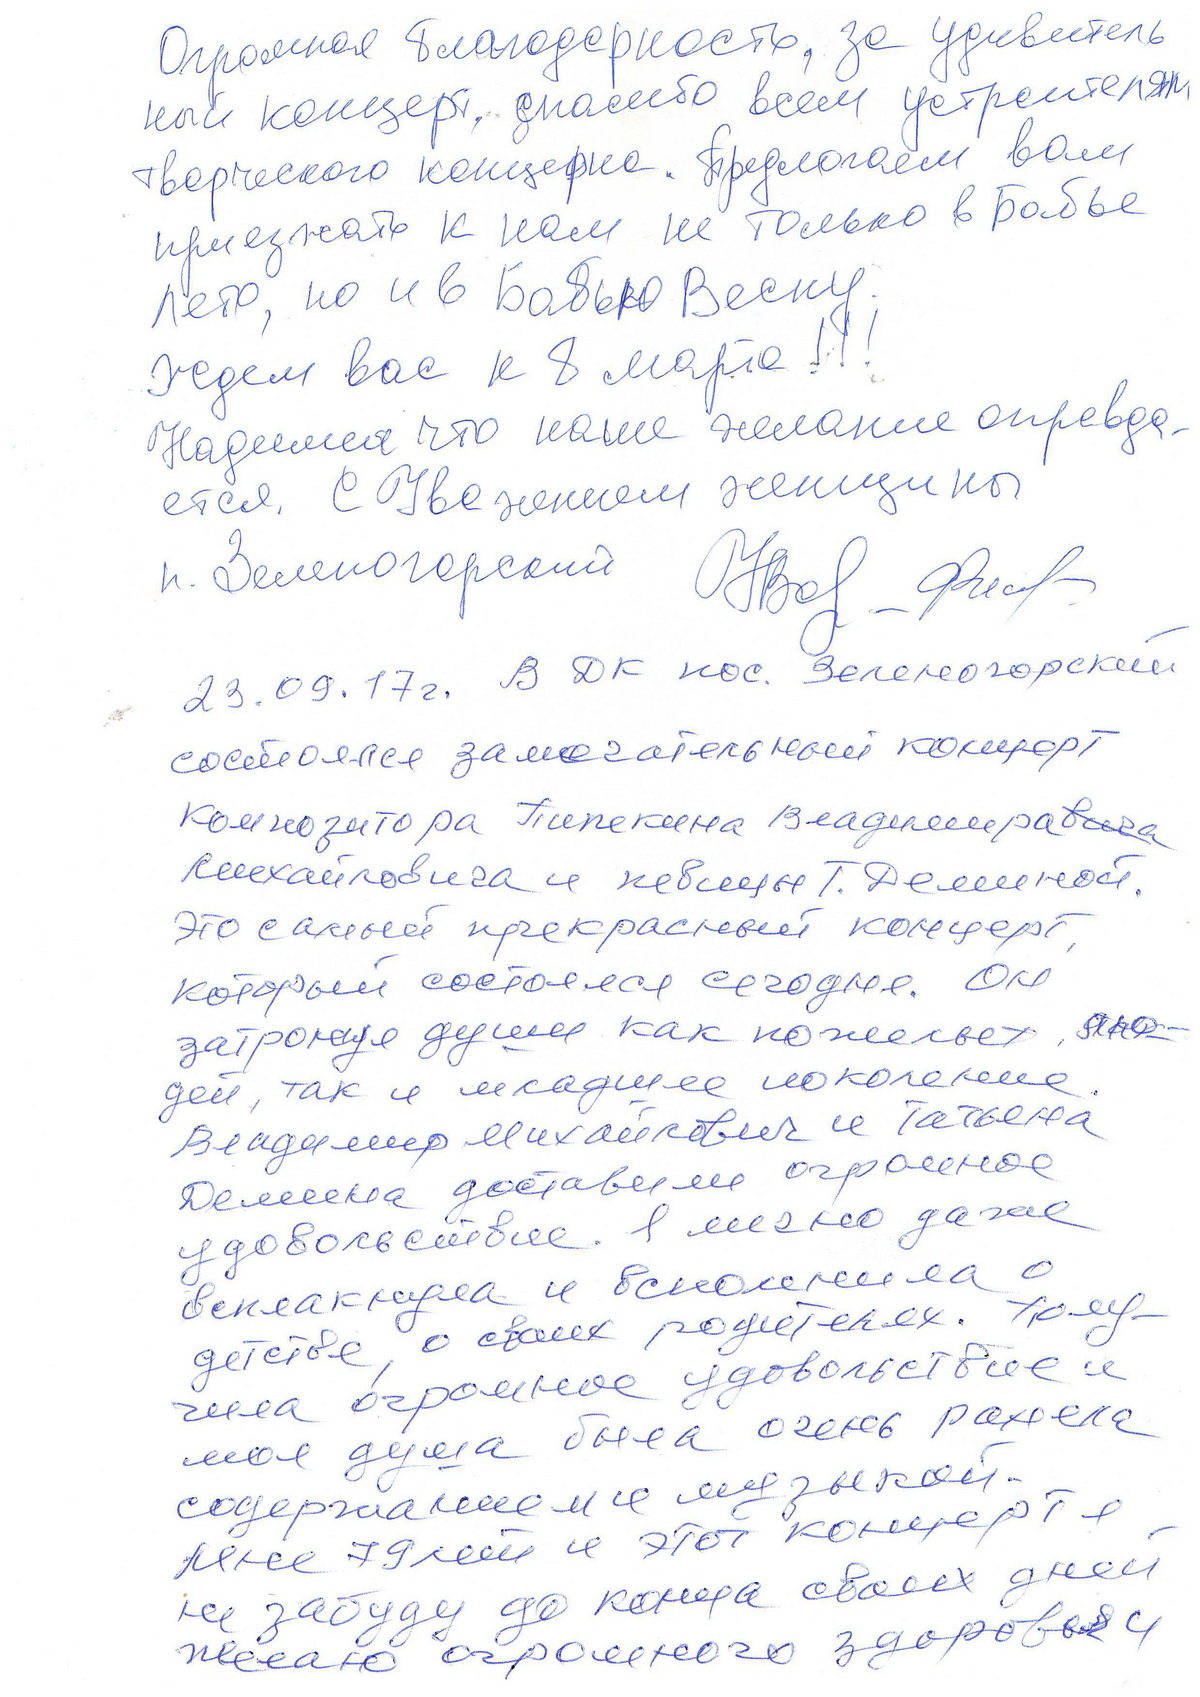 Огромная благодарность, за удивитель
ный концерт, спасибо всем устроителям
творческого концерна. Предлогаем вам
приезжать к нам не только в Бабье
Лето, но и в Бабью Весну.
Ждем вас к 8 марта!!!
Надимся что наше желание оправда-
ется. С Уважением женщины
п. Зеленогорский
23.09.17г. В ДК пос. Зеленогорский
состоялся замечательный концерт
композитора Пипекина Владимира
Михайловича и певицы Т. Деминой.
Это самый прекрасный концерт,
который состоялся сегодня. Он
затронул души как пожилых, лю-
дей, так и младшее поколение.
Владимир Михайлович и Татьяна
Демина доставили огромное
удовольствие. Я лично даже
всплакнула и вспомнила о
детстве, о своих родителях. Полу-
чила огромное удовольствие и
моя душа была очень ранена
содержанием и музыкой.
Мне 79 лет и этот концерт я
не забуду до конца своих дней
Желаю огромного здоровья и